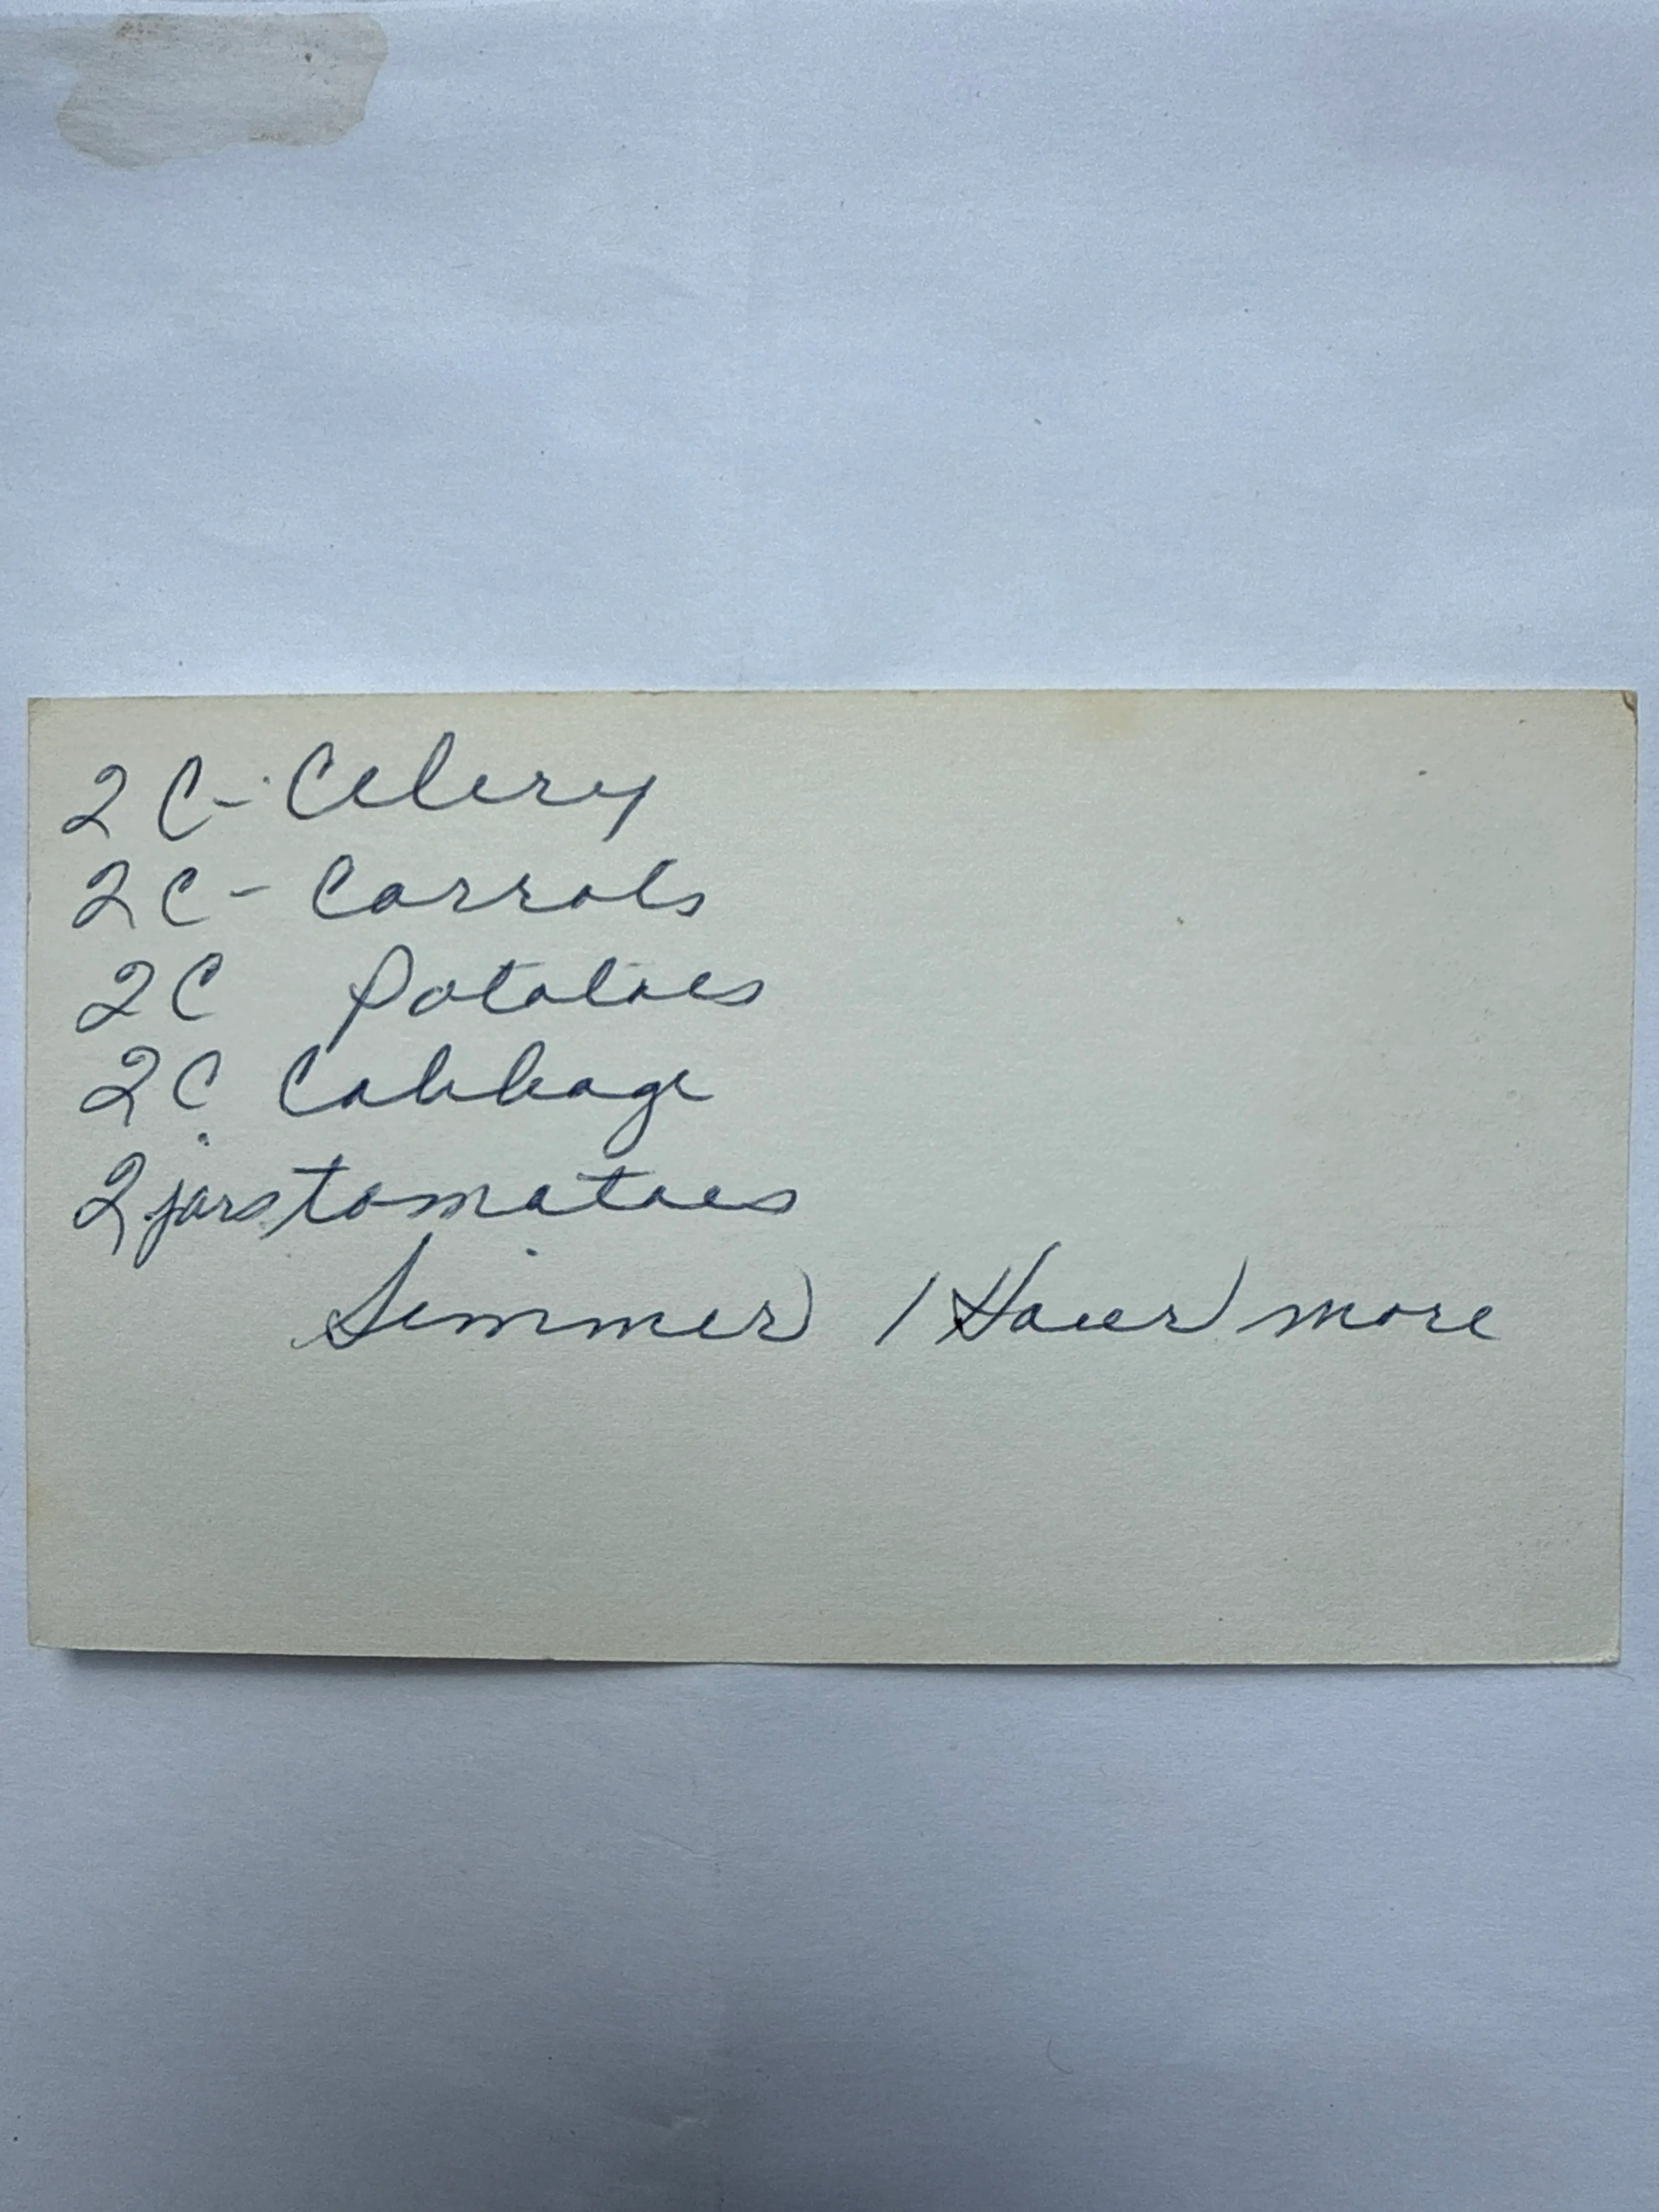 2 C - Celery
2 C - Carrots
2 C Potatoes
2 C Cabbage
2 jars tomatoes
Simmer 1 Hour more